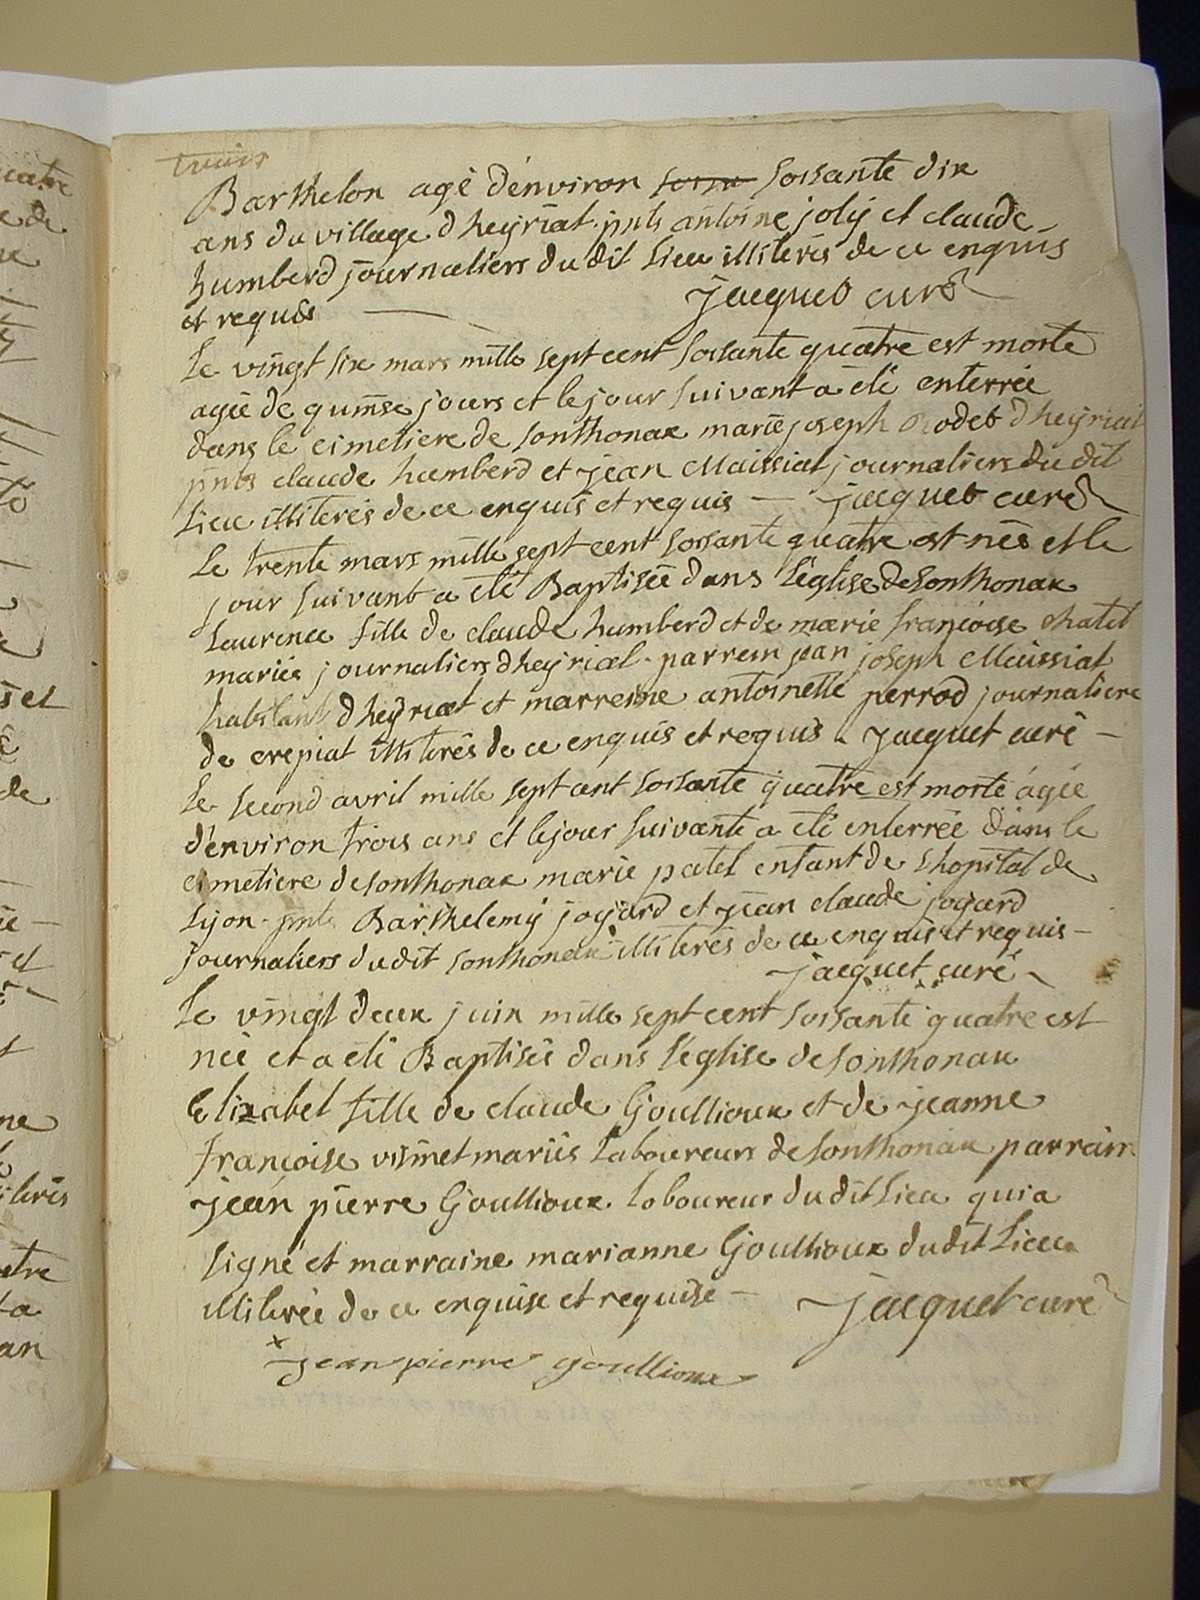 trois
Barthelon agé d'environ soisante dix
ans du village d heyriat. pnts antoine joly et claude
humberd journaliers du dit Lieu illiterés de ce enquis
et requis — jacquet curé
Le vingt six mars mille sept cent soisante quatre est morte
agée de quinse jours et le jour suivant a été enterrée
dans le cimetiere de sonthonax marie joseph d heyriat
pnts claude humberd et jean Maissiat journaliers du dit
Lieu illiterés de ce enquis et requis — jacquet curé
Le trente mars mille sept cent soisante quatre est née et le
jour suivant a été Baptisée dans l'église de sonthonax
Laurence fille de claude humberd et de marie françoise chatel
mariés journaliers d heyriat. parrein jean joseph Maissiat
habitant d heyriat et marreine antoinette perrod journaliere
de crepiat illiterés de ce enquis et requis. jacquet curé —
Le second avril mille sept cent soisante quatre est morte agée
d'environ trois ans et le jour suivante a été enterrée dans le
cimetiere de sonthonax marie patel enfant de l hopital de
Lyon. pnts Barthelemy joyard et jean claude joyard
journaliers du dit sonthonax illiterés de ce enquis et requis —
jacquet curé
Le vingt deux juin mille sept cent soisante quatre est
née et a été Baptisée dans l'église de sonthonax
elizabet fille de claude Goullioux et de jeanne
françoise vismet mariés Laboureurs de sonthonax parrain
jean pierre Goullioux Laboureur du dit Lieu qui a
signé et marraine marianne Goullioux du dit Lieu
illiterée de ce enquise et requise — jacquet curé
x jean pierre goullioux